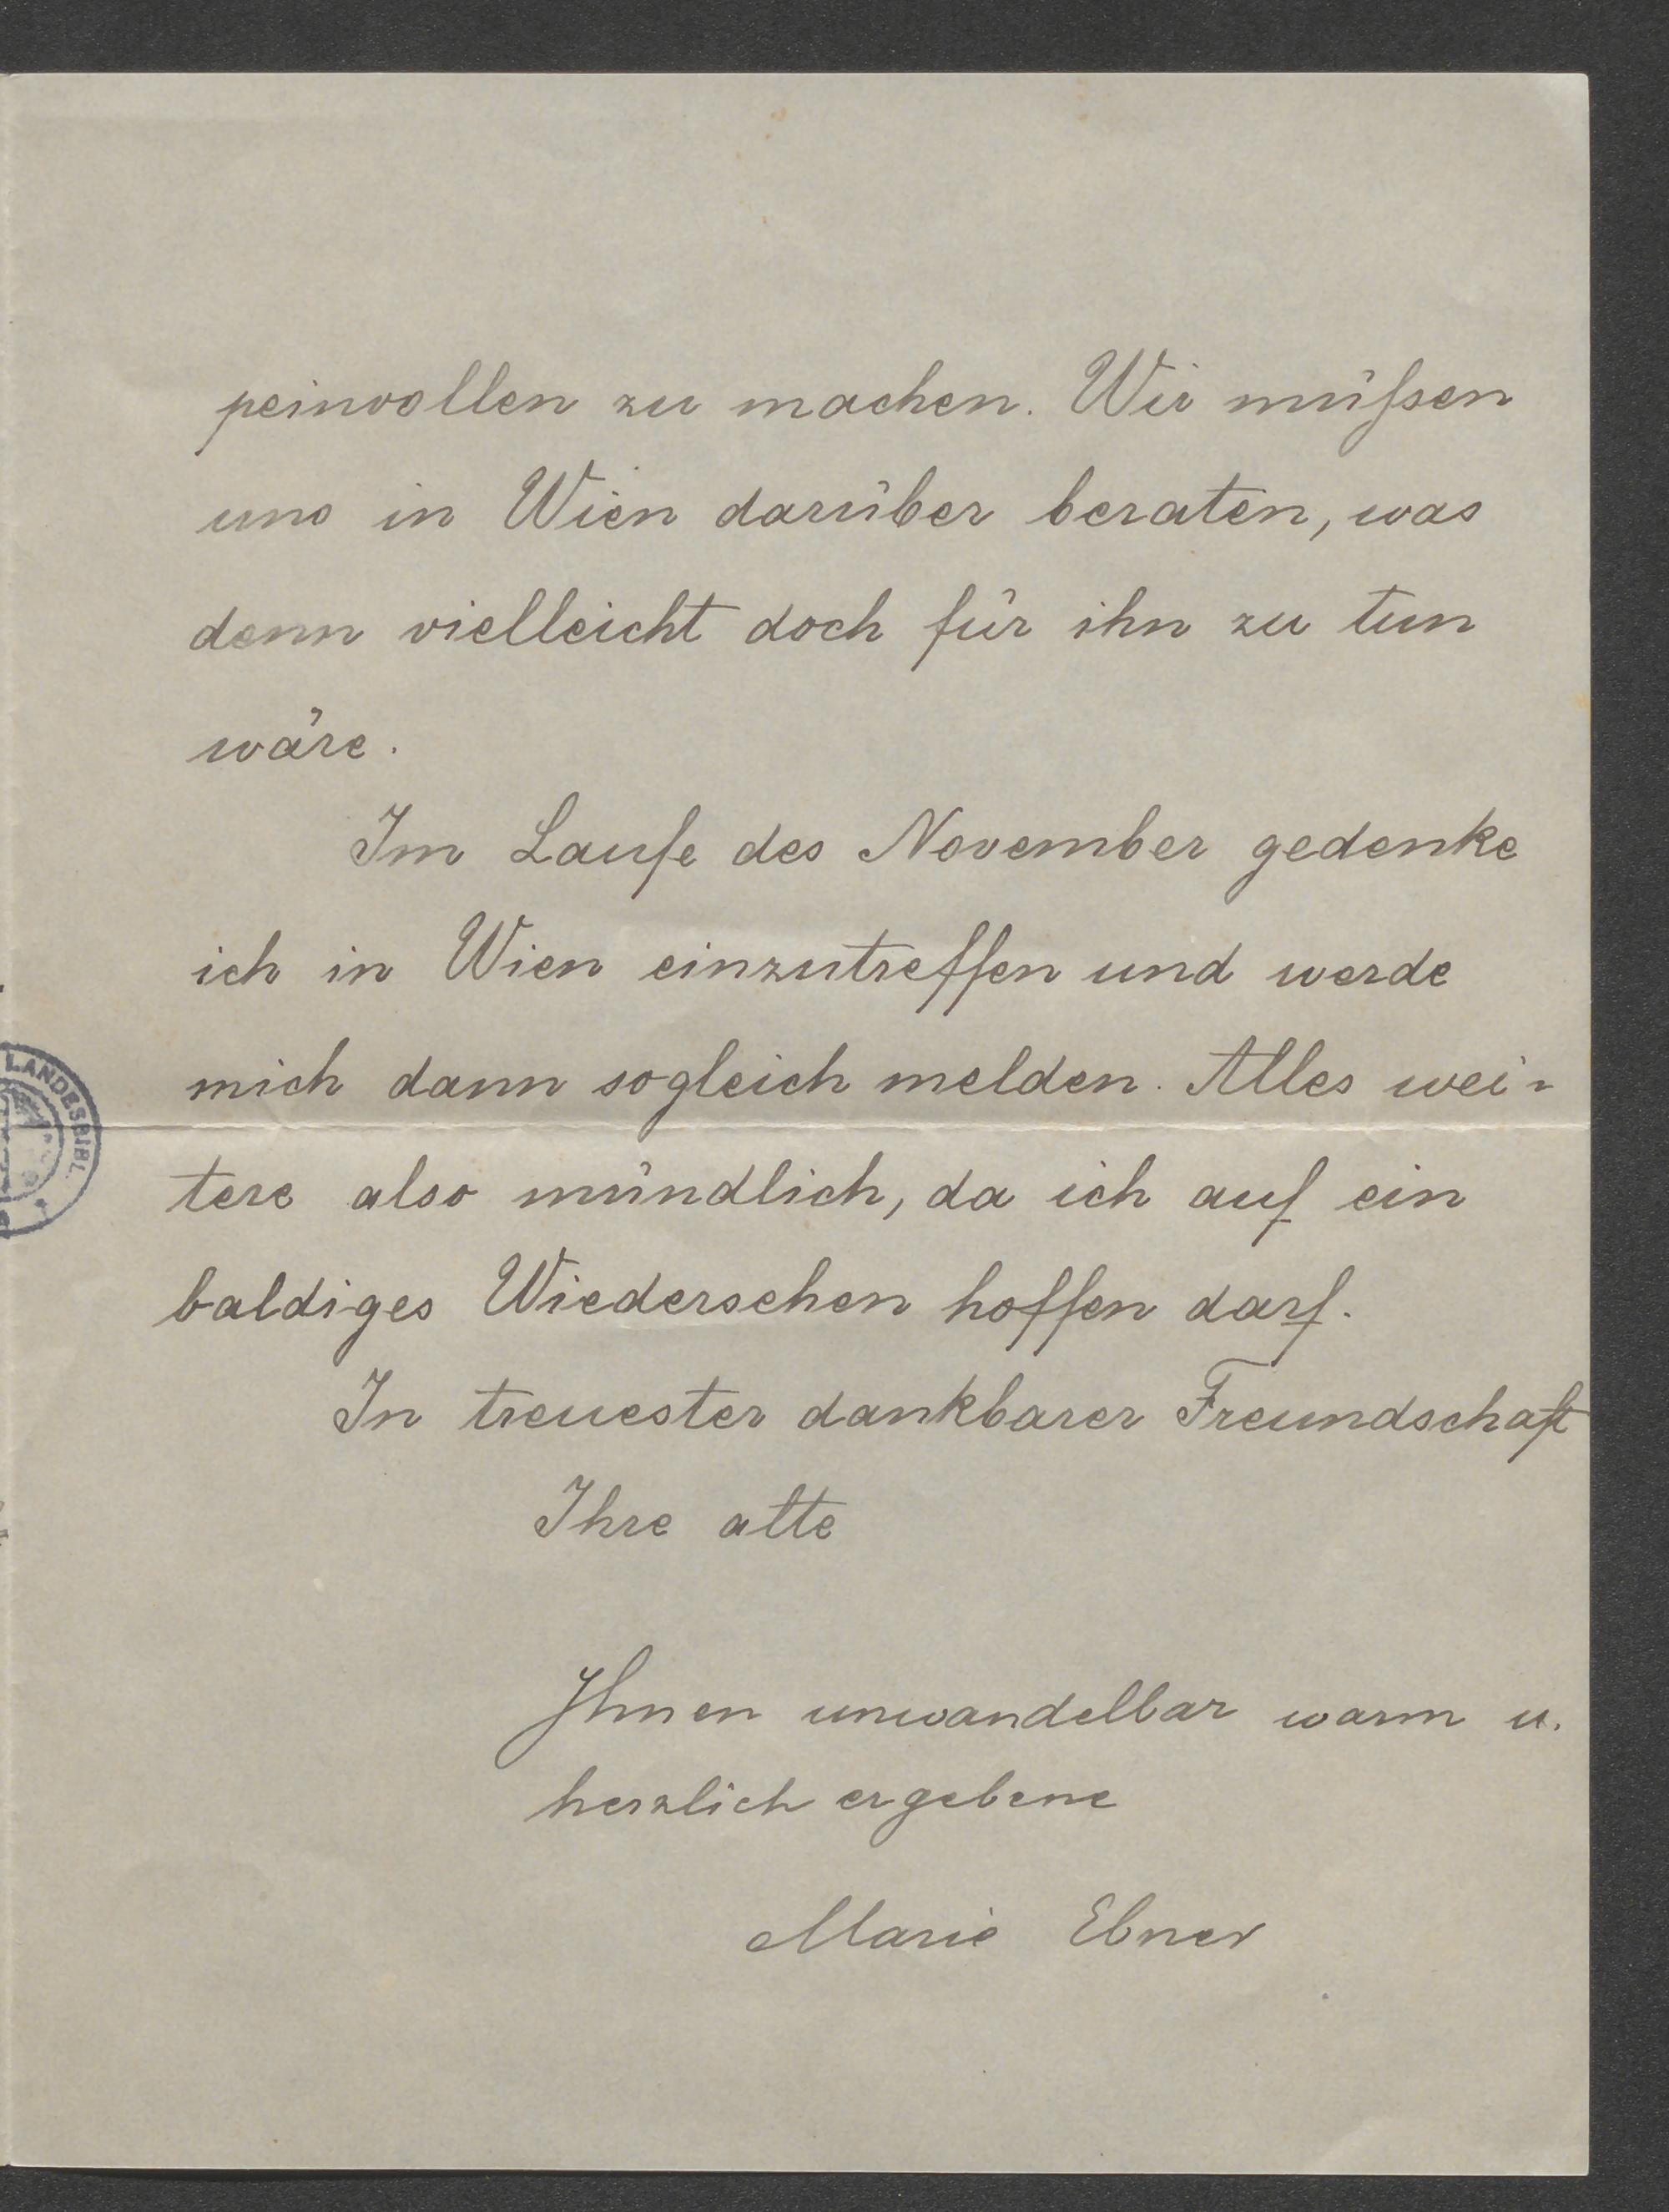 peinvollen zu machen. Wir müſsen
uns in Wien darüber beraten, was
denn vielleicht doch für ihn zu tun
wäre.
Im Laufe des November gedenke
ich in Wien einzutreffen und werde
mich dann sogleich melden. Alles wei-
tere also mündlich, da ich auf ein
baldiges Wiedersehen hoffen darf.
In treuester dankbarer Freundschaft
Ihre alte
Ihnen unwandelbar warm u.
herzlich ergebene
Marie Ebner
LANDESBIBL.